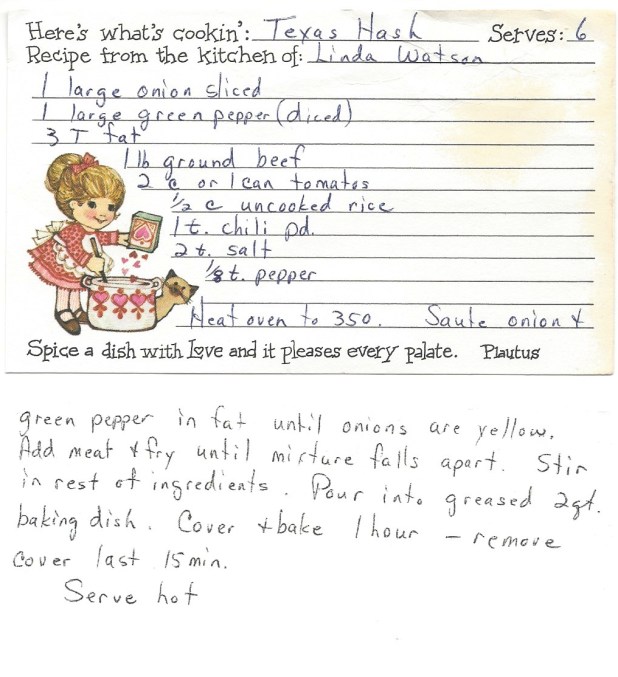 Here's what's cookin': Texas Hash Serves: 6
Recipe from the kitchen of: Linda Watson
1 large onion sliced
1 large green pepper (diced)
3 T fat
1 lb ground beef
2 c or 1 can tomatos
1/2 c uncooked rice
1 t. chili pd.
2 t. salt
1/8 t. pepper
Heat oven to 350. Saute onion +
Spice a dish with Love and it pleases every palate. Plautus
green pepper in fat until onions are yellow.
Add meat + fry until mixture falls apart. Stir
in rest of ingredients. Pour into greased 2qt.
baking dish. Cover + bake 1 hour – remove
cover last 15 min.
Serve hot